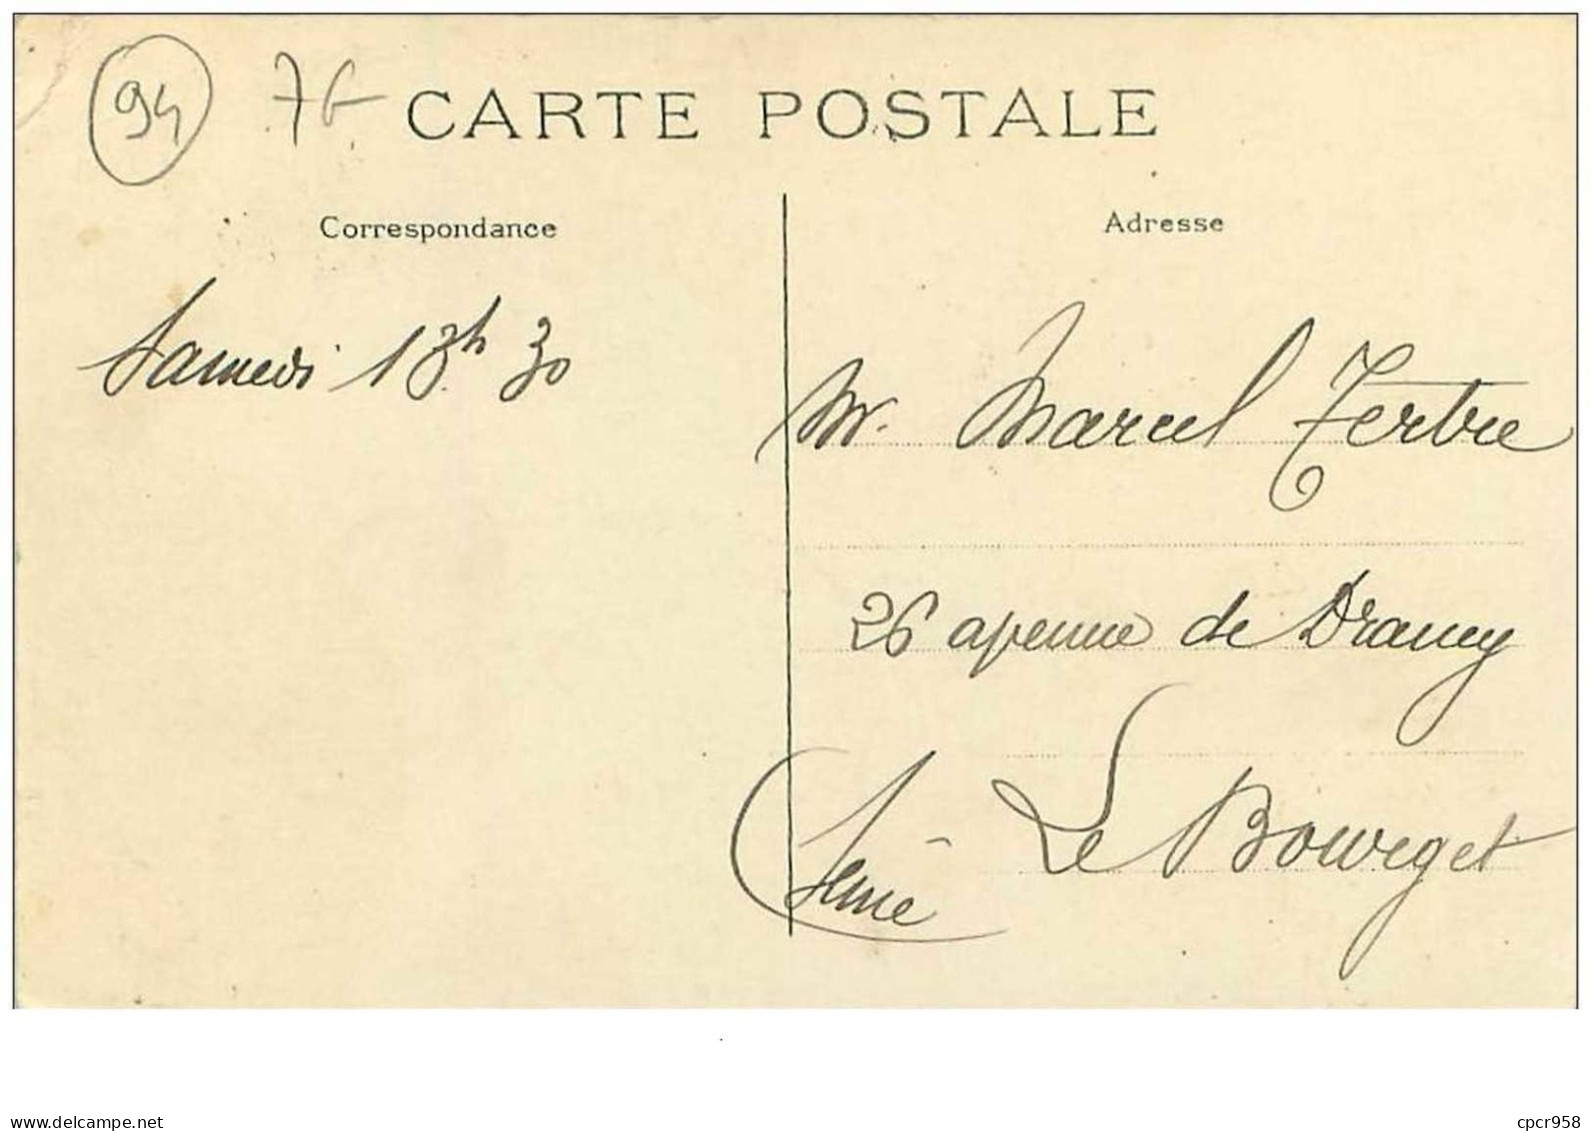 94 76 CARTE POSTALE
Correspondance
Samedi 13h 30
Adresse
Mr. Marcel Tertre
26 avenue de Drancy
Le Bourget
Seine
www.delcampe.net
cpcr958